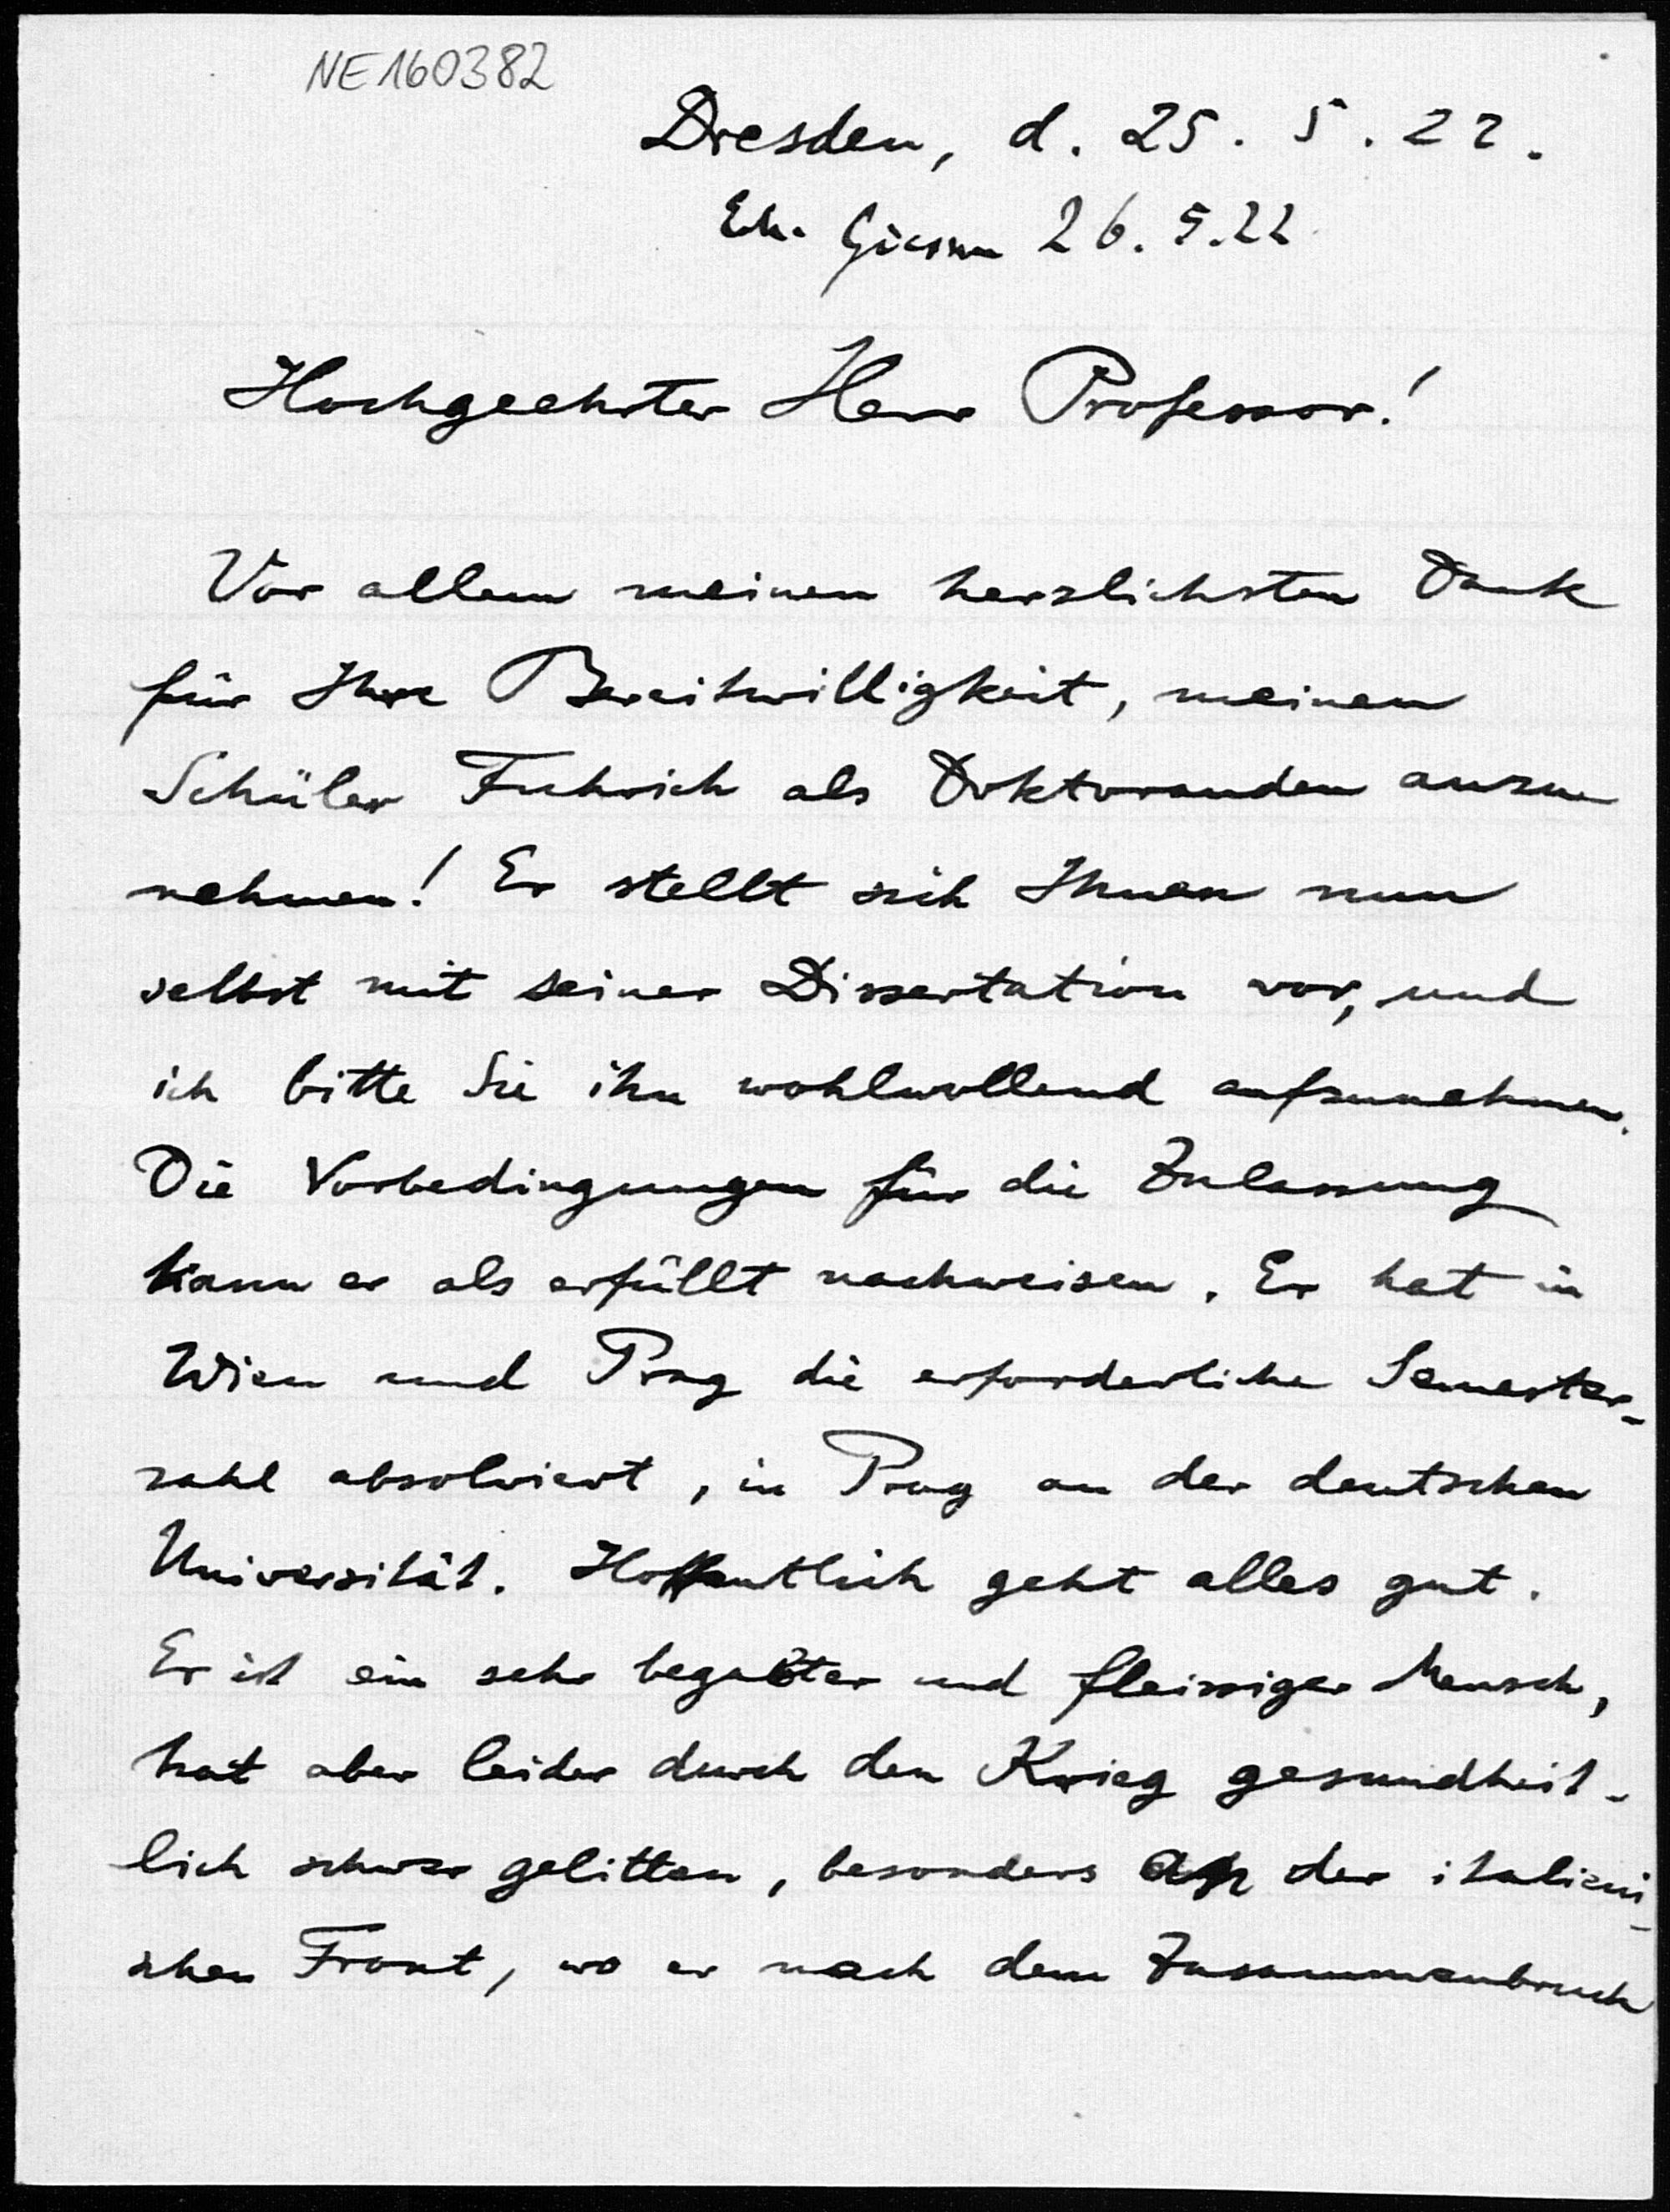 NE160382
Dresden, d. 25. 5. 22.
Erh. Giessen 26. 5. 22
Hochgeehrter Herr Professor!
Vor allem meinen herzlichsten Dank
für Ihre Bereitwilligkeit, meinen
Schüler Fuhrich als Doktoranden anzu
nehmen! Er stellt sich Ihnen nun
selbst mit seiner Dissertation vor, und
ich bitte Sie ihn wohlwollend aufzunehmen.
Die Vorbedingungen für die Zulassung
kann er als erfüllt nachweisen. Er hat in
Wien und Prag die erforderliche Semester-
zahl absolviert, in Prag an der deutschen
Universität. Hoffentlich geht alles gut.
Er ist ein sehr begabter und fleissiger Mensch,
hat aber leider durch den Krieg gesundheit-
lich schwer gelitten, besonders an der italieni-
schen Front, wo er nach dem Zusammenbruch